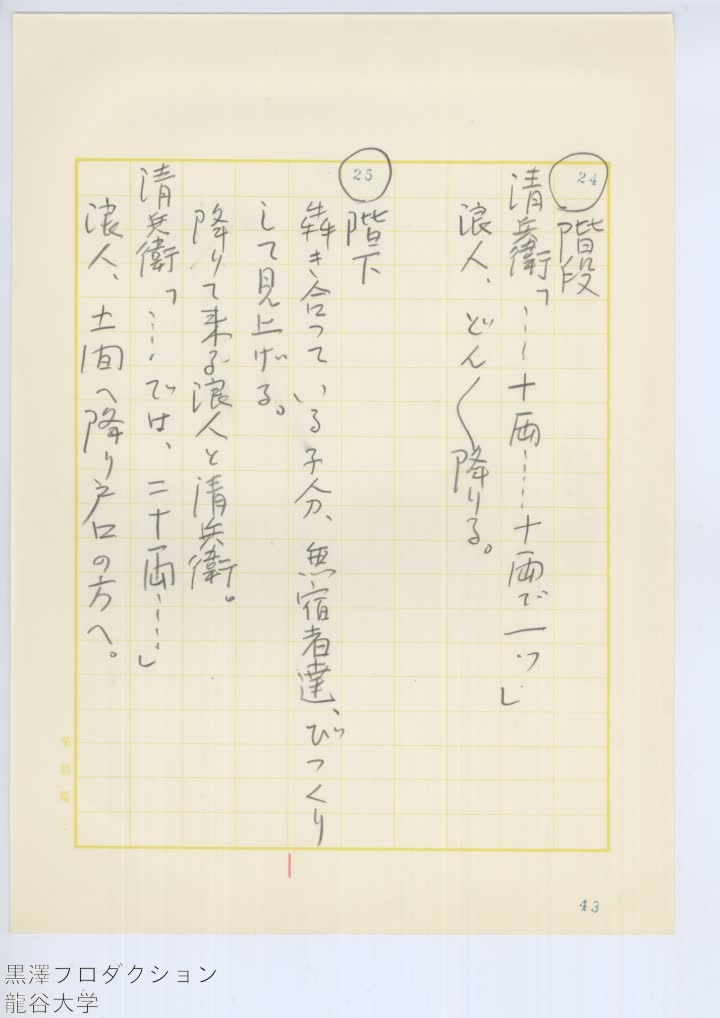 24
階段
清兵衛「……十両……十両で一つ」
浪人、どん〱降りる。
25
階下
犇き合っている子分、無宿者達、びっくり
して見上げる。
降りて来る浪人と清兵衛。
清兵衛「……では、二十両……」
浪人、土間へ降り戸口の方へ。
43
黒澤プロダクション
龍谷大学